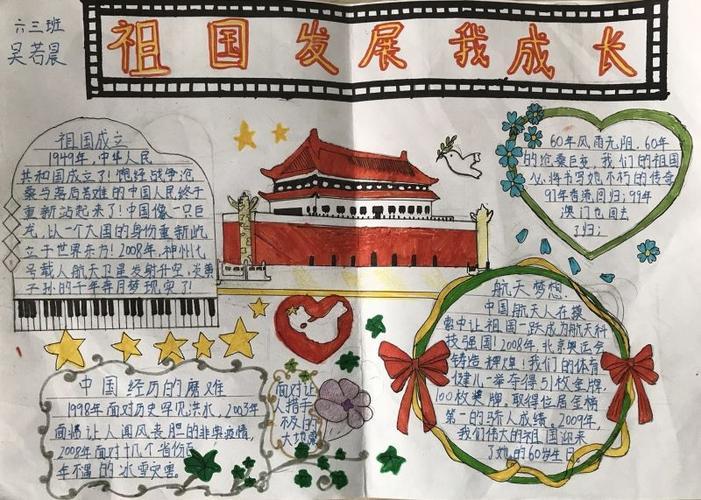 六三班
吴若晨
祖国发展我成长
祖国成立
1949年,中华人民
共和国成立了!饱经战争沧
桑与落后苦难的中国人民终于
重新站起来了!中国像一只巨
龙,以一个大国的身份重新屹
立于世界东方!2008年,神州七
号载人航天卫星发射升空,炎黄
子孙的千年奔月梦现实了!
60年风雨无阻,60年
的沧桑巨变,我们的祖国
必将书写她不朽的传奇
97年香港回归;99年
澳门也回去
了归;
航天梦想:
中国航天人在摸
索中让祖国一跃成为航天科
技强国!2008年北京奥运会
铸造辉煌!我们的体育
健儿一举夺得51枚金牌,
100枚奖牌,取得位居金榜
第一的骄人成绩。2009年,
我们伟大的祖国迎来
了她的60岁生日
中国经历的磨难
1998年面对历史罕见洪水,2003年
面临让人闻风丧胆的非典疫情,
2008年面对十几个省份百
年不遇的冰雪灾害
面对让
人措手
不及的
大地震